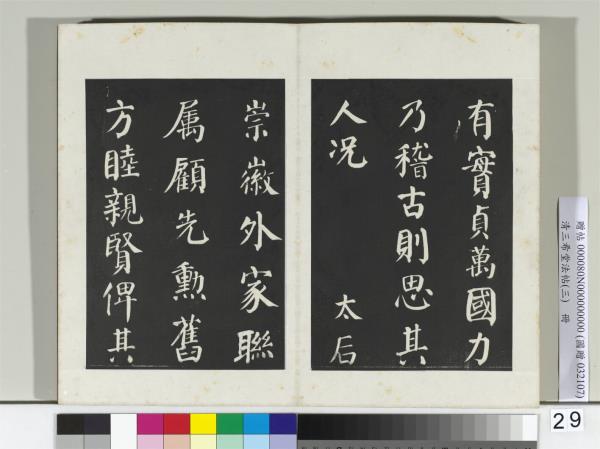 有實貞萬國力
乃稽古則思其
人况 太后
崇徽外家聯
属顧先勳舊
方睦親賢俾其
贈帖 000080N000000000 (國贈 032107)
清三希堂法帖(三) 冊
29